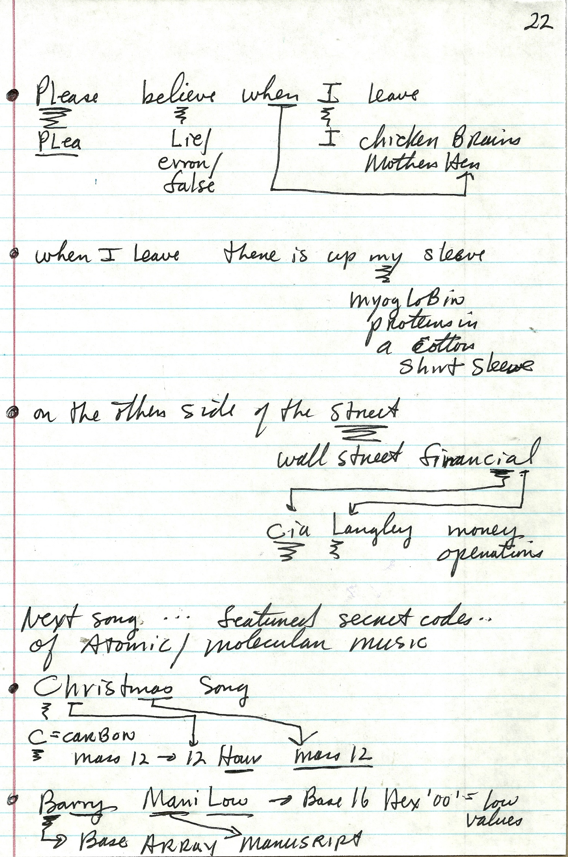 22
Please believe when I leave
PLea Lie/ I chicken Brains
error/ Mother Hen
false
when I leave there is up my sleeve
myogloBin
proteins in
a cotton
shirt sleeve
on the other side of the street
wall street financial
Cia Langley money
operations
Next song ... featured secret codes..
of Atomic/molecular music
Christmas Song
C = CARBON
mass 12 → 12 Hour mass 12
Barry Mani Low → Base 16 Hex '00' = low
values
Base ARRAY MANUSRIPT